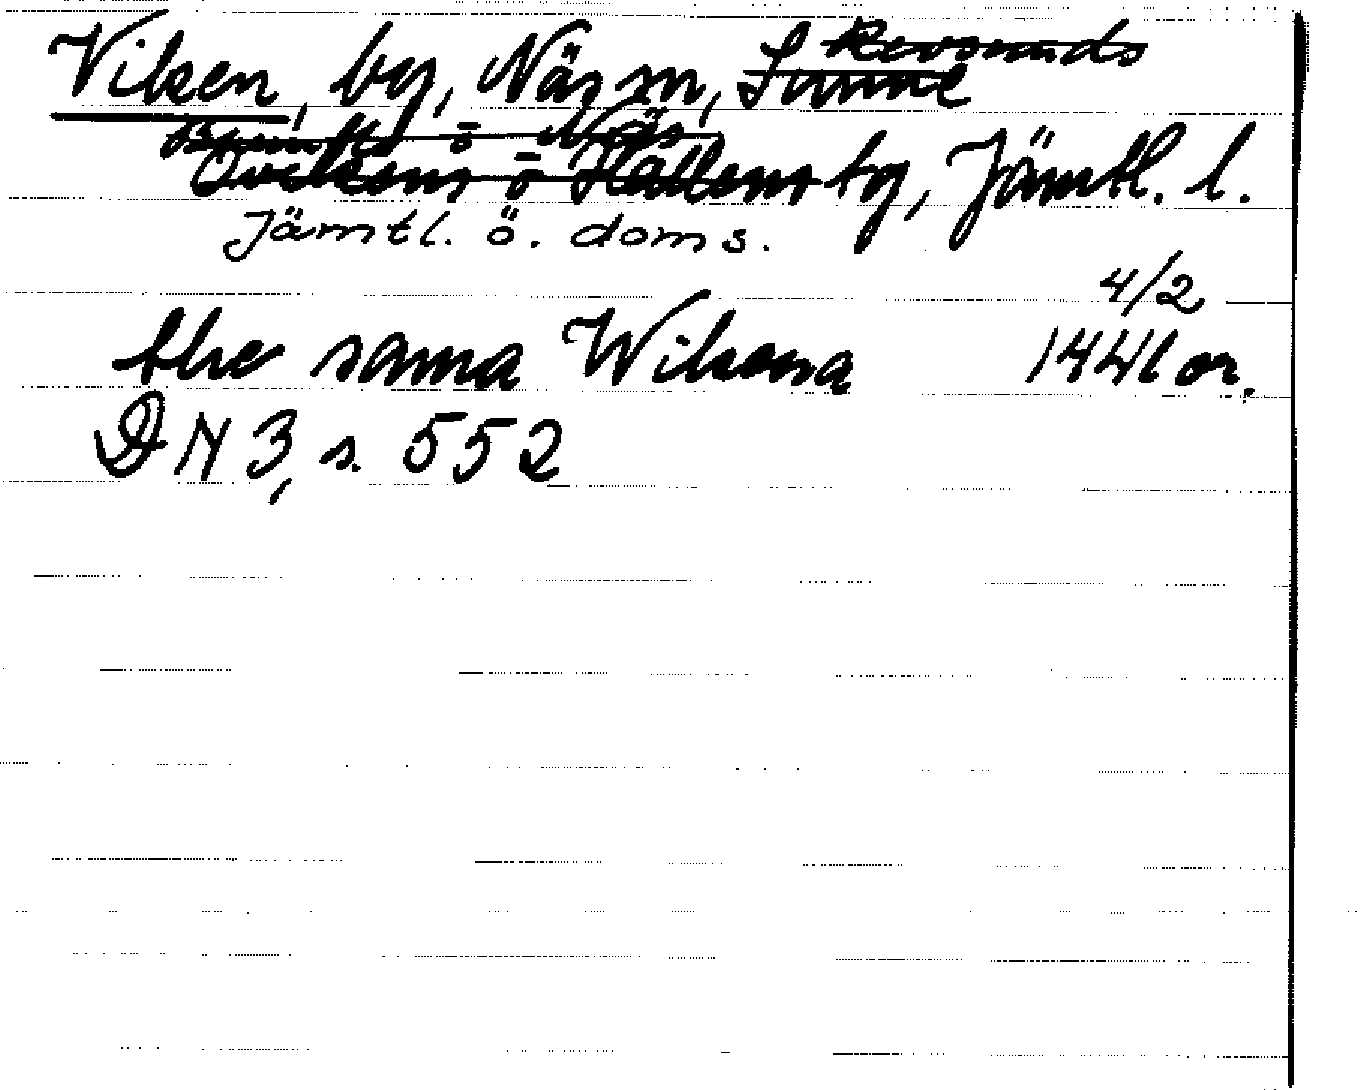 Vilsen, by, Näs sn, Sunne Revsunds
Brunflo o Näs
Ovikens o Hallens tg, Jämtl. l.
Jämtl. ö. doms.
4/2
the sama Wilsena 1441 or.
DN 3, s. 552